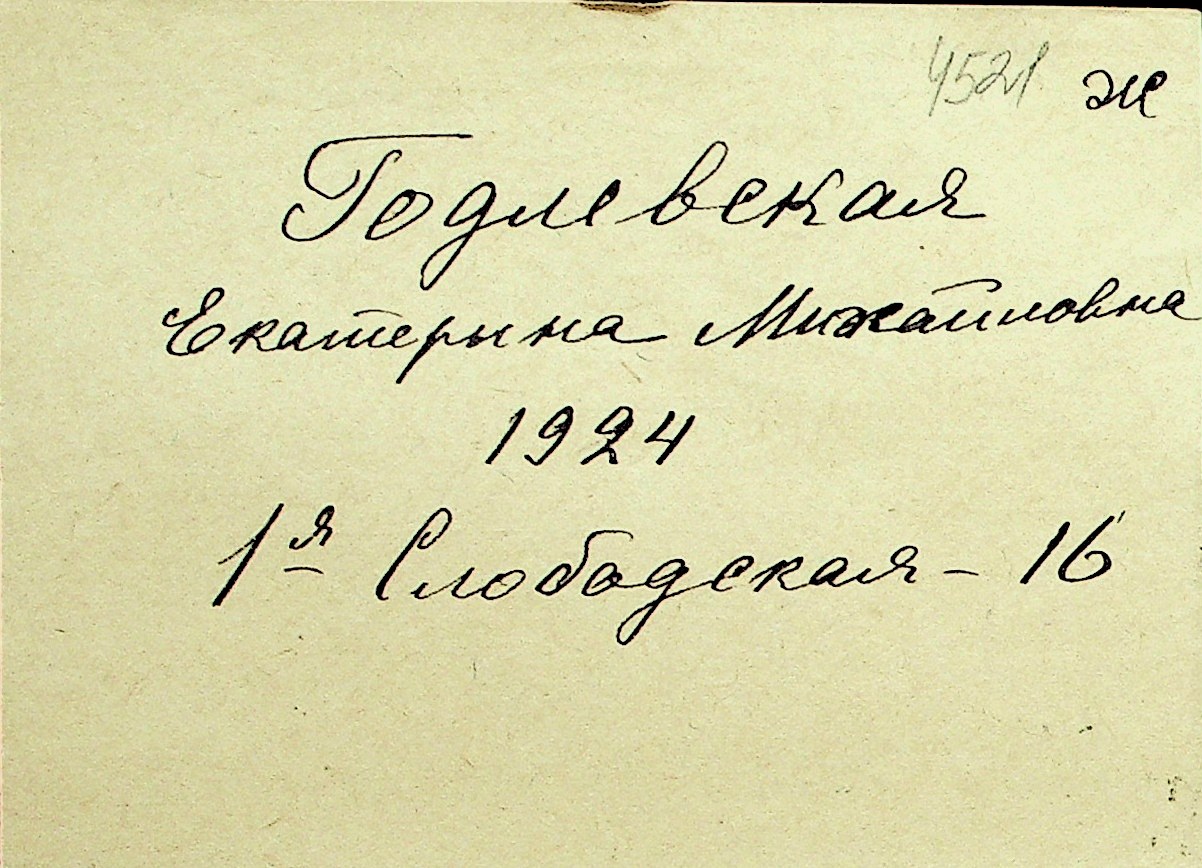 4521 ж
Годлевская
Екатерына Михайловна
1924
1я Слободская - 16